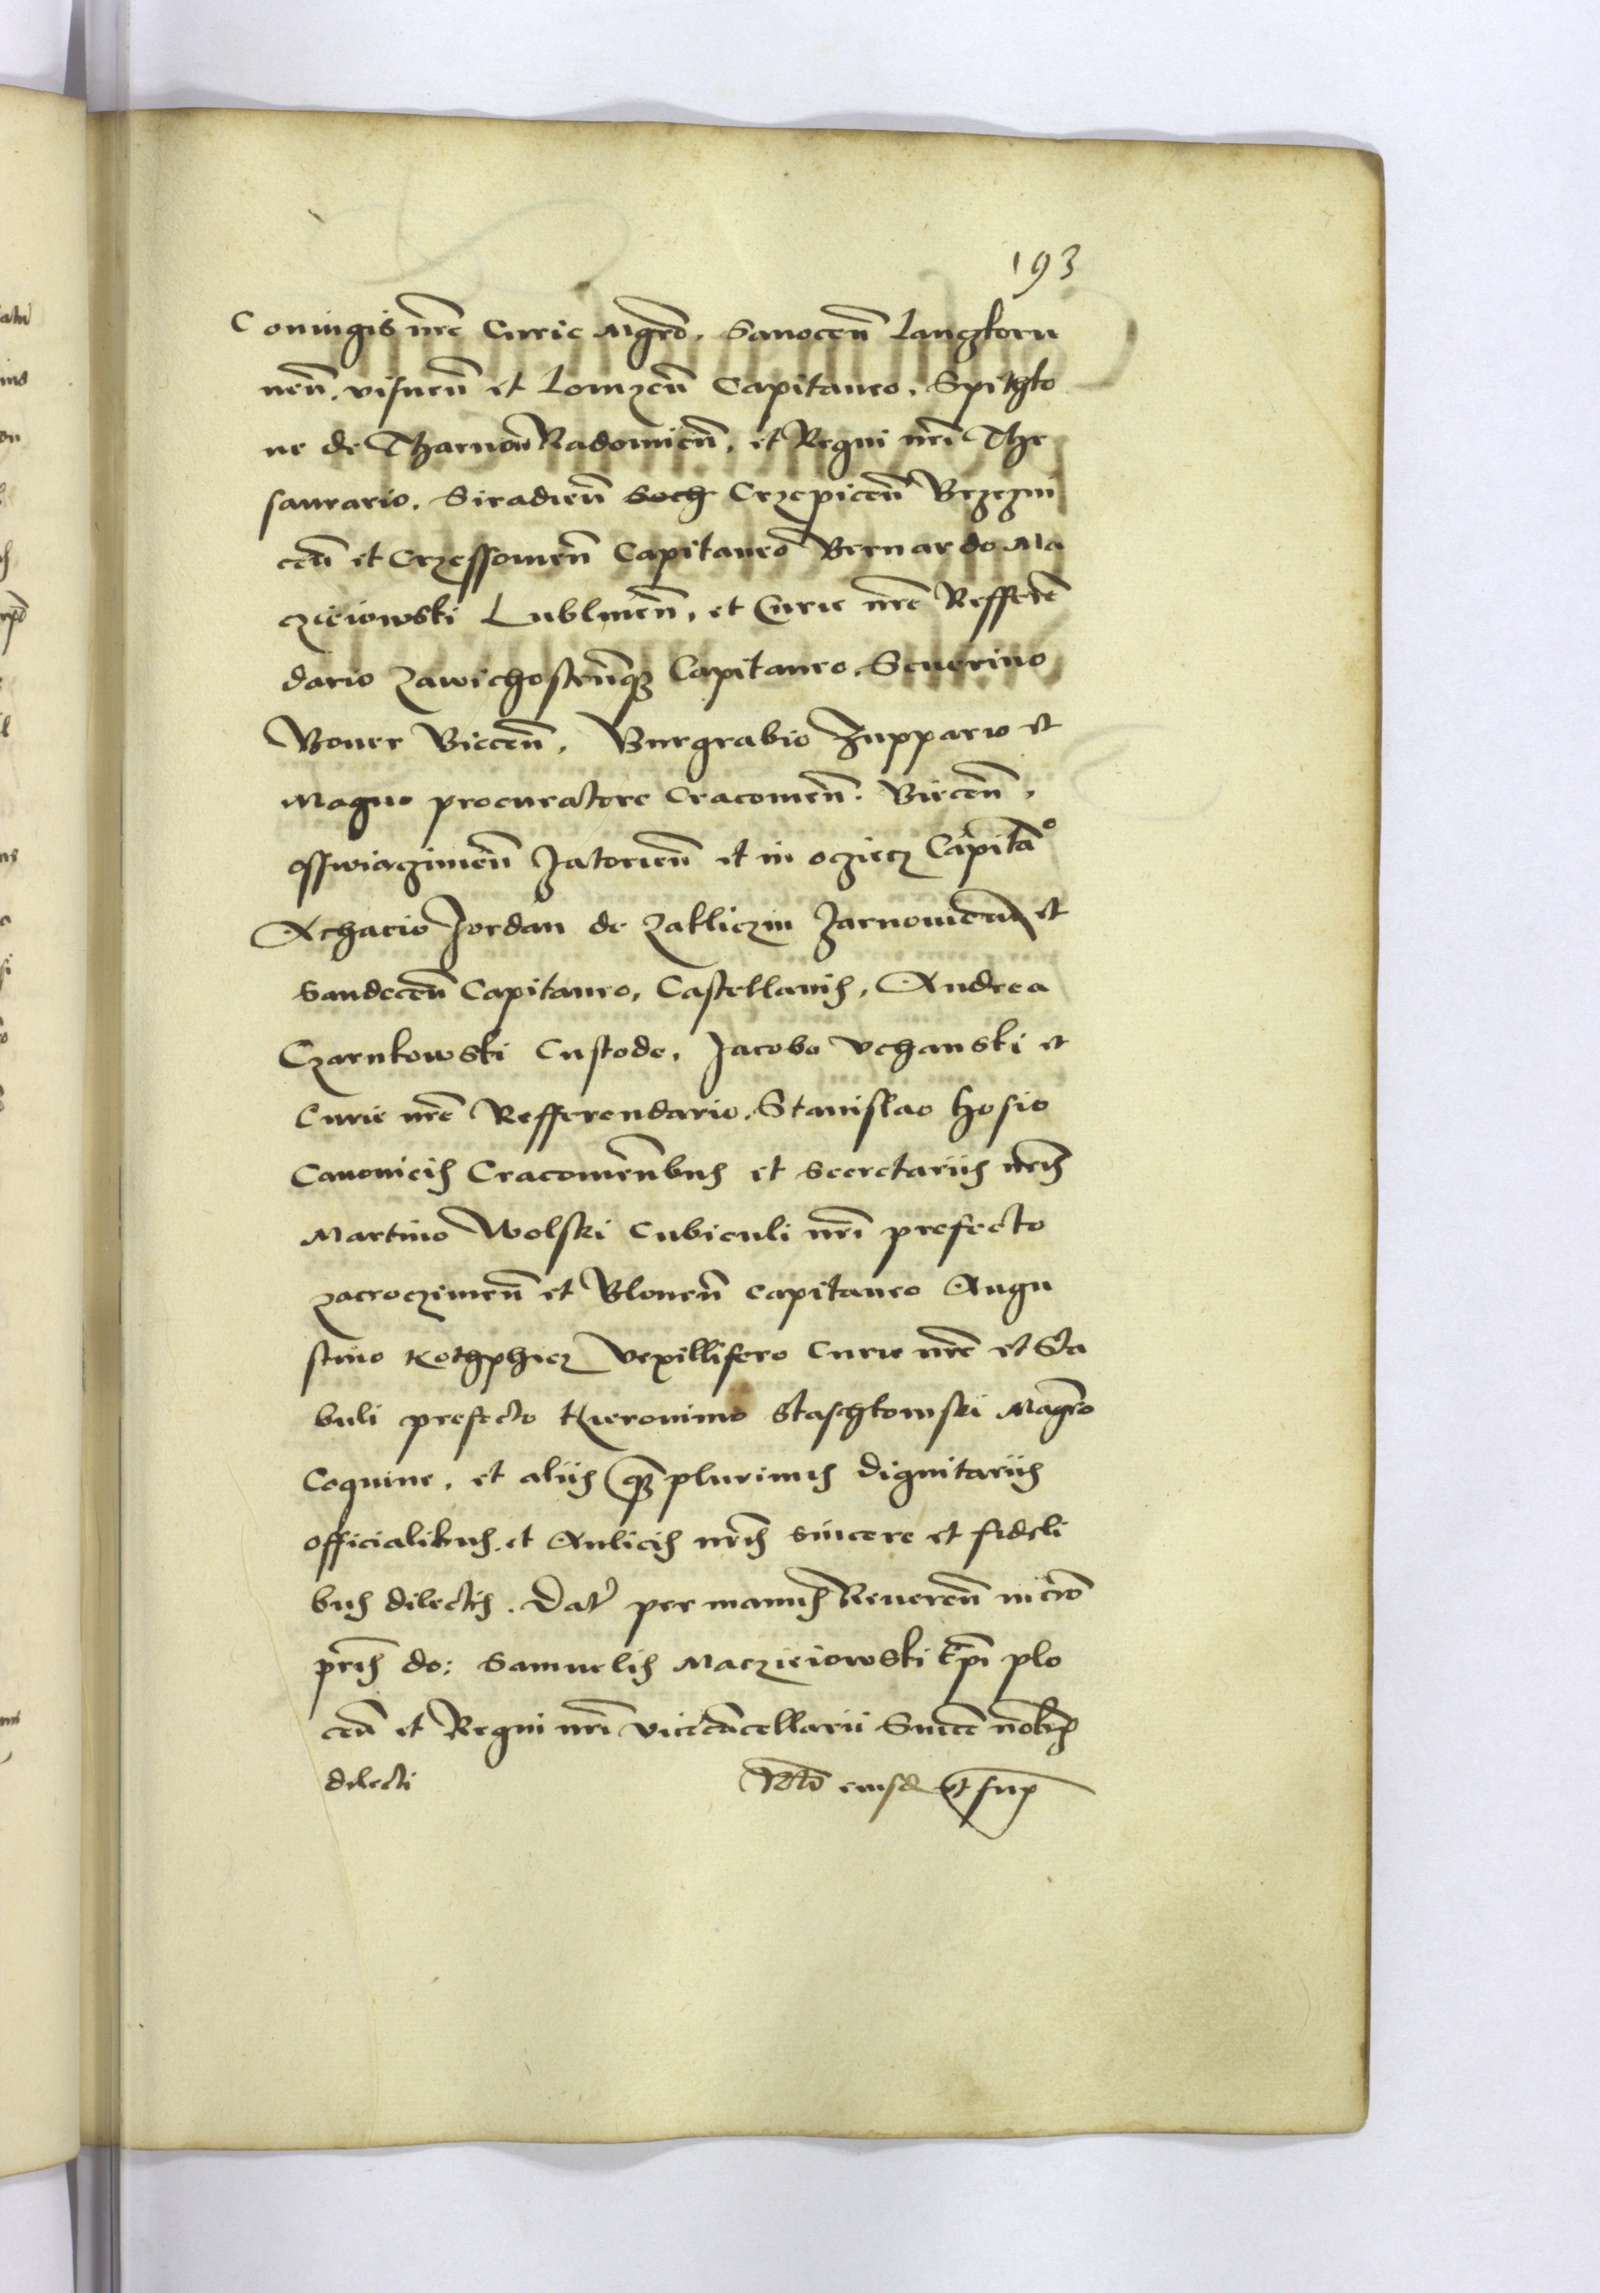 193
Coniugis nre Curie Mgro. Sanocen Langkoru
nen. visnen et Lomzen Capitaneo. Spithko
ne de Tharnow Radomien. et Regni nri The
saurario. Siradien Soch Crzepicen Brzezni
cen et Crzessowien Capitaneo Bernardo Ma
czieiowski Lublinen. et Curie nre Refferen
dario Zawichostenque Capitaneo. Seuerino
Boner Biecen. Burgrabio Zuppario et
Magno procuratore Cracowien. Biecen.
osswiaczimen Zatorien et in ocziecz Capitao
Achacio Jordan de Zakliczin Zarnowicen et
Sandecen Capitaneo. Castellanis. Andrea
Czarnkowski Custode. Jacobo vchanski et
Curie nre Refferendario. Stanislao hosio
Canonicis Cracowienbus et Secretariis nris
Martino Wolski Cubiculi nri prefecto
zacroczimen et Blonen capitaneo Augu
stino Kothphicz Vexillifero Curie nre et Sta
buli prefecto Hieronimo Staschkowski Magro
Coquine. et aliis quam plurimis dignitariis
officialibus. et Aulicis nris sincere et fideli
bus dilectis. Dat per manus Reueren in cro
pris do: Samuelis Maczieiowski Epi plo
cen et Regni nri vicecancellarii Sincere nobis
dilecti Relatio eiusdem vt sup